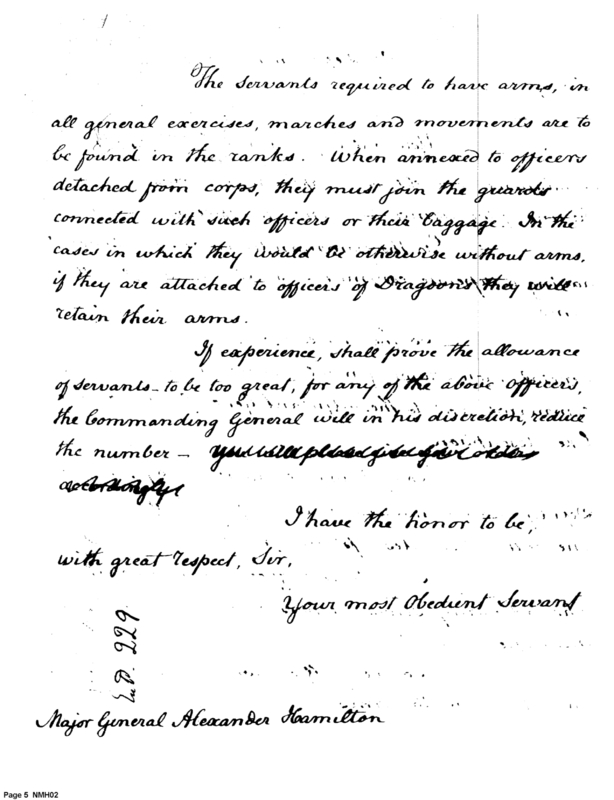 The servants required to have arms, in
all general exercises, marches and movements are to
be found in the ranks. When annexed to officers
detached from corps, they must join the guards
connected with such officers or their baggage. In the
cases in which they would be otherwise without arms,
if they are attached to officers of Dragoons they will
retain their arms.
If experience, shall prove the allowance
of servants to be too great, for any of the above officers,
the Commanding General will in his discretion, reduce
the number – you will please give your orders
accordingly
I have the honor to be,
with great respect, Sir,
Your most Obedient Servant
229
Major General Alexander Hamilton
Page 5 NMH02